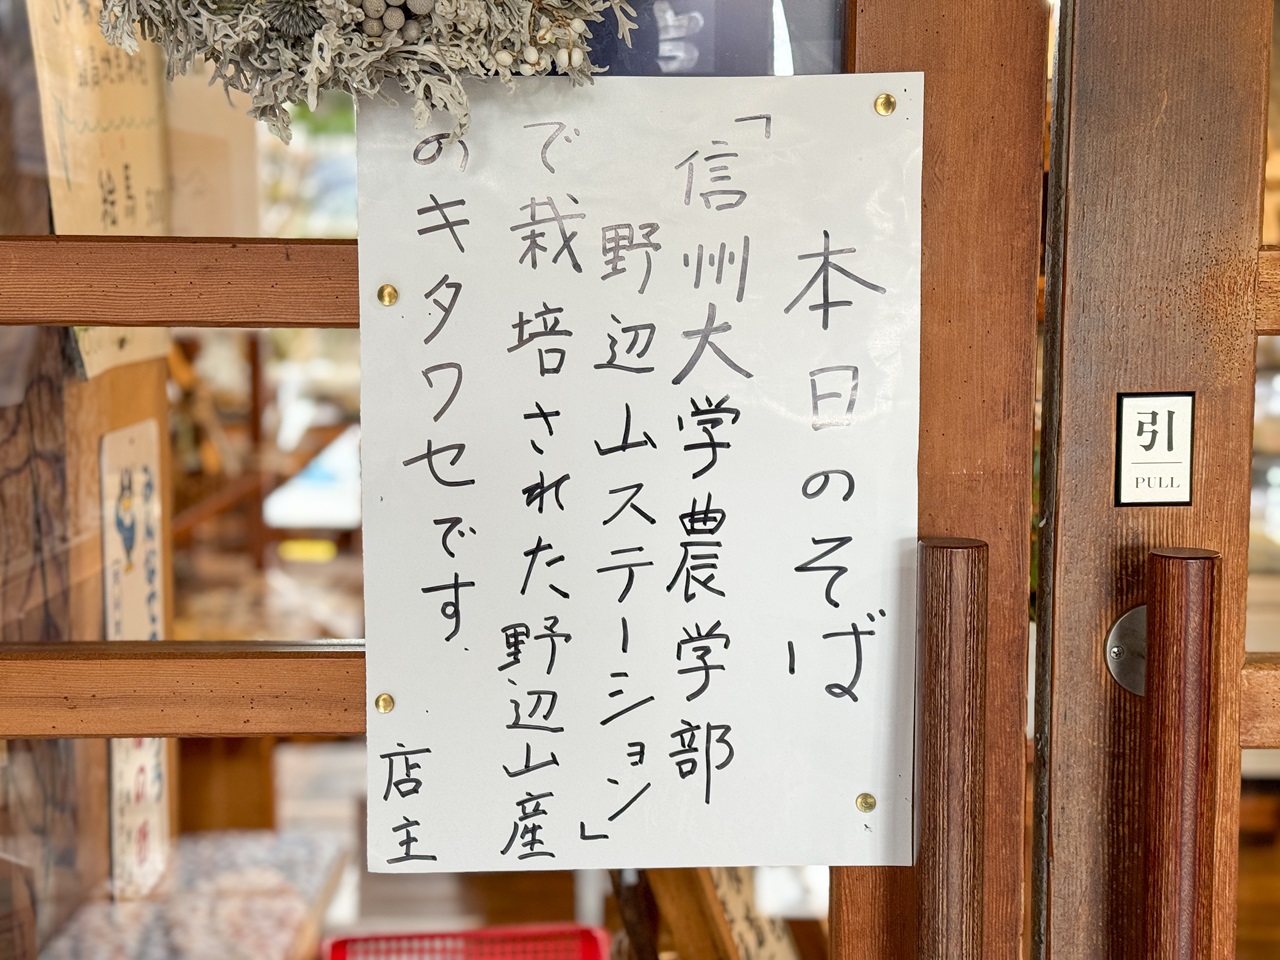 本日のそば
「信州大学農学部
野辺山ステーション」
で栽培された野辺山産
のキタワセです.
店主
引
PULL